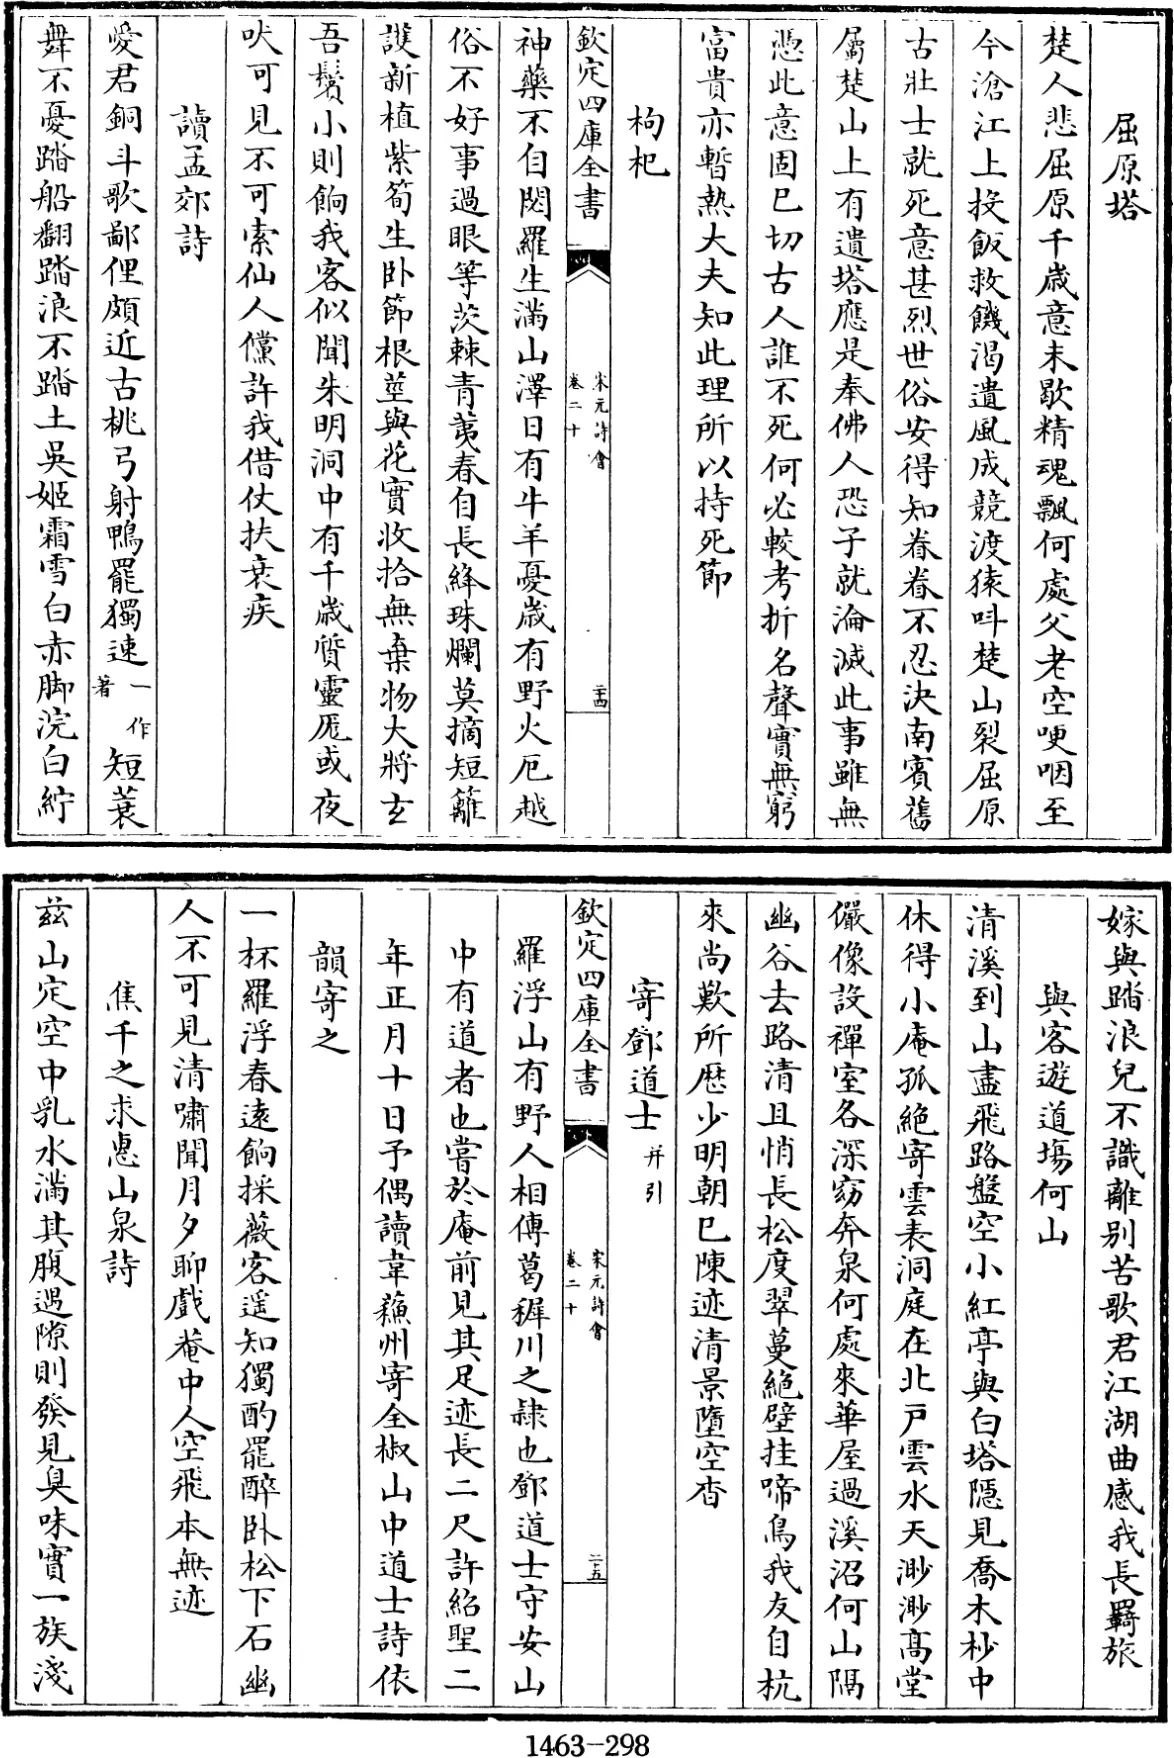 屈原塔
楚人悲屈原千歲意未歇精魂飄何處父老空哽咽至
今滄江上投飯救饑渴遺風成競渡猿叫楚山裂屈原
古壯士就死意甚烈世俗安得知眷眷不忍決南賓舊
屬楚山上有遺塔應是奉佛人恐子就淪滅此事雖無
憑此意固已切古人誰不死何必較考折名聲實無窮
富貴亦暫熱大夫知此理所以持死節
枸杞
欽定四庫全書
宋元詩會
卷二十
二十四
神藥不自閟羅生滿山澤日有牛羊憂歲有野火厄越
俗不好事過眼等茨棘青荑春自長絳珠爛莫摘短籬
護新植紫筍生卧節根莖與花實收拾無棄物大將玄
吾鬢小則餉我客似聞朱明洞中有千歲質靈厖或夜
吠可見不可索仙人儻許我借仗扶衰疾
讀孟郊詩
愛君銅斗歌鄙俚頗近古桃弓射鴨罷獨速一作著短蓑
舞不憂踏船翻踏浪不踏土吳姬霜雪白赤脚浣白紵
嫁與踏浪兒不識離别苦歌君江湖曲感我長羈旅
與客遊道塲何山
清溪到山盡飛路盤空小紅亭與白塔隱見喬木杪中
休得小庵孤絶寄雲表洞庭在北戸雲水天渺渺髙堂
儼像設禪室各深窈奔泉何處來華屋過溪沼何山隔
幽谷去路清且悄長松度翠蔓絶壁挂啼鳥我友自杭
來尚歎所歴少明朝已陳迹清景墮空杳
寄鄧道士并引
欽定四庫全書
宋元詩會
卷二十
二十五
羅浮山有野人相傳葛稺川之隷也鄧道士守安山
中有道者也嘗於庵前見其足迹長二尺許紹聖二
年正月十日予偶讀韋蘇州寄全椒山中道士詩依
韻寄之
一杯羅浮春遠餉採薇客遥知獨酌罷醉卧松下石幽
人不可見清嘯聞月夕聊戲菴中人空飛本無迹
焦千之求惠山泉詩
兹山定空中乳水滿其腹遇隙則發見臭味實一族淺
1463-298